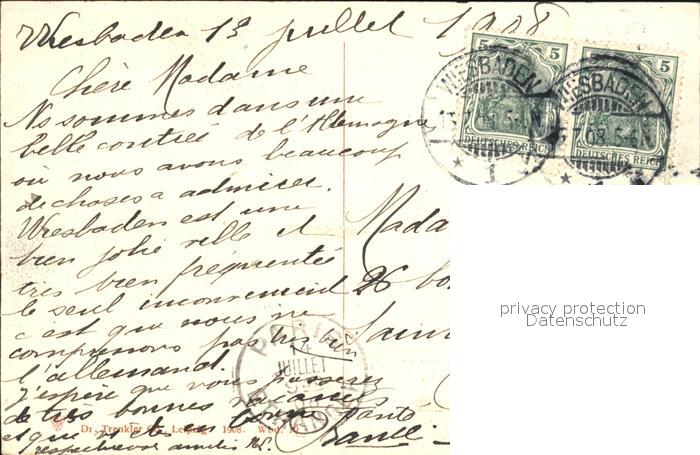 Wiesbaden 13 juillet 1908
Chère Madame
Ns sommes dans une
belle contrée de l'Allemagne
où nous avons beaucoup
de choses a admirer.
Wiesbaden est une
bien jolie ville et
très bien fréquentée
le seul inconvenient
c'est que nous ne
comprenons pas très bien
l'allemand.
J'espère que vous passerez
de très bonnes vacances
et que
respectueux
Dr. Trenkler Co., Leipzig. 1908. Wbd.
5 5 5
DEUTSCHES REICH DEUTSCHES REICH
WIESBADEN
WIESBADEN
1
PARIS
14
JUILLET
Mada
26
privacy protection
Datenschutz